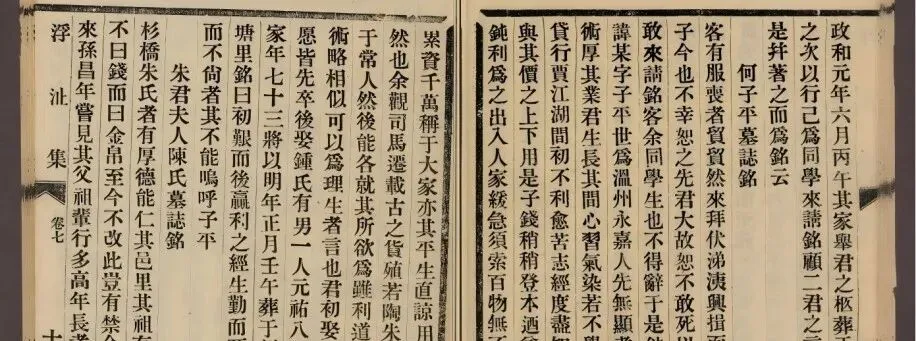 政和元年六月丙午其家舉君之柩葬
之次以行己爲同學來請銘顧二君之
是幷著之而爲銘云
何子平墓誌銘
客有服喪者貿貿然來拜伏涕洟興揖而
子今也不幸恕之先君大故恕不敢死以
敢來請銘客余同學生也不得辭于是
諱某字子平世爲溫州永嘉人先無顯
術厚其業君生長其間心習氣染若不
貸行賈江湖間初不利愈苦志經度盡
與其價之上下用是子錢稍稍登本迺
鈍利爲之出入人家緩急須索百物無
累資千萬稱于大家亦其平生直諒用
然也余觀司馬遷載古之貨殖若陶朱
于常人然後能各就其所欲爲雖利道
術略相似可以爲理生者言也君初娶
愿皆先卒後娶鍾氏有男一人元祐八
家年七十三將以明年正月壬午葬于
塘里銘曰初艱而後贏利之經生勤而
而不尚者其不能嗚呼子平
朱君夫人陳氏墓誌銘
杉橋朱氏者有厚德能仁其邑里其祖
不曰錢而曰金帛至今不改此豈有禁
來孫昌年嘗見其父祖輩行多高年長
浮沚集 卷七